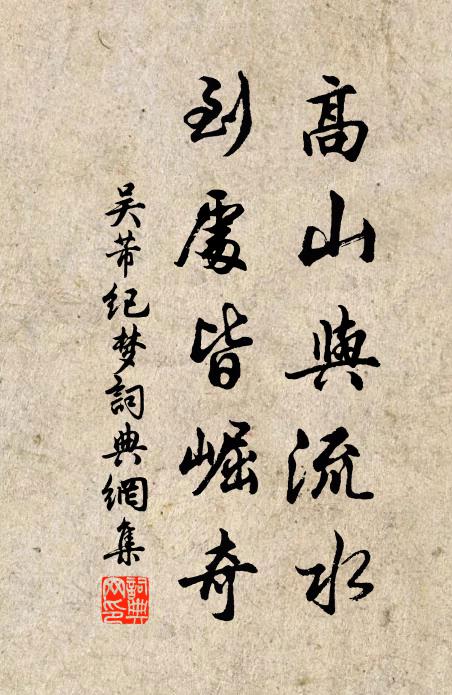 高山與流水
到處皆崛奇
吴芾纪梦詞典網集
詞典网印